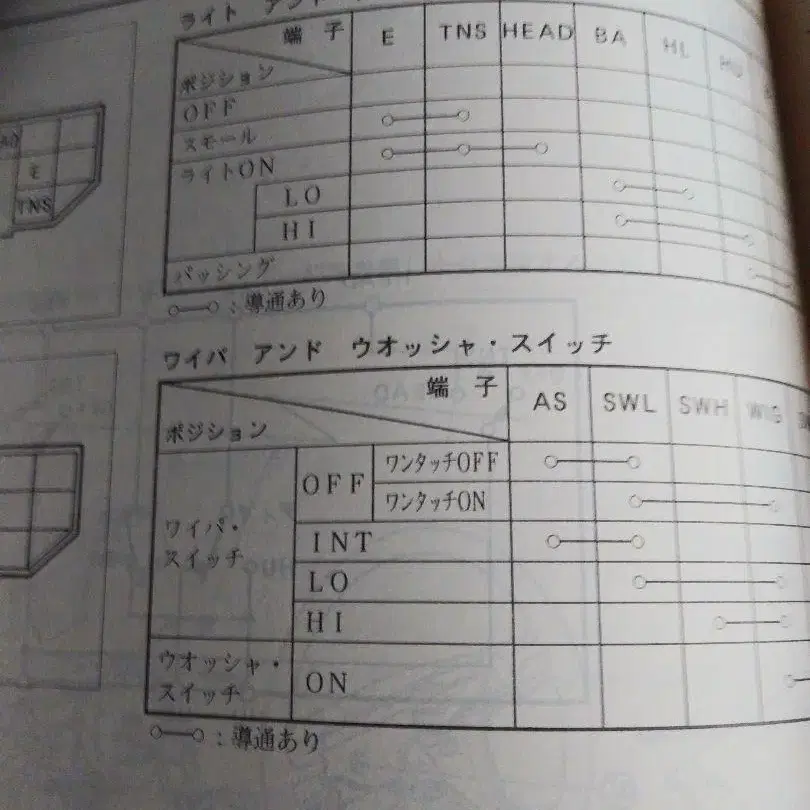 ライト アンド
端子 E TNS HEAD BA HL HU
ポジション
OFF
スモール
ライトON
LO
HI
パッシング
:導通あり
E
TNS
ワイパ アンド ウオッシャ・スイッチ
端子 AS SWL SWH WIG
ポジション
ワイパ・スイッチ
OFF ワンタッチOFF
ワンタッチON
INT
LO
HI
ウオッシャ・スイッチ
ON
:導通あり